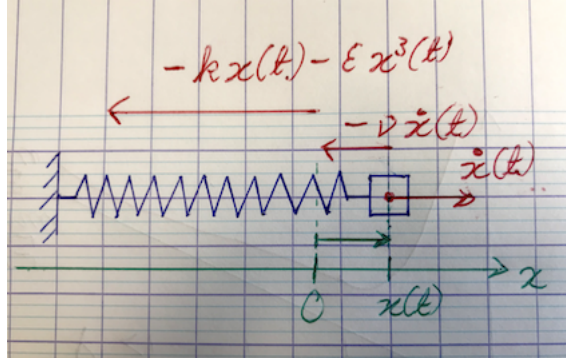 -kx(t)-εx³(t)
-νẋ(t)
ẋ(t)
x
0 x(t)